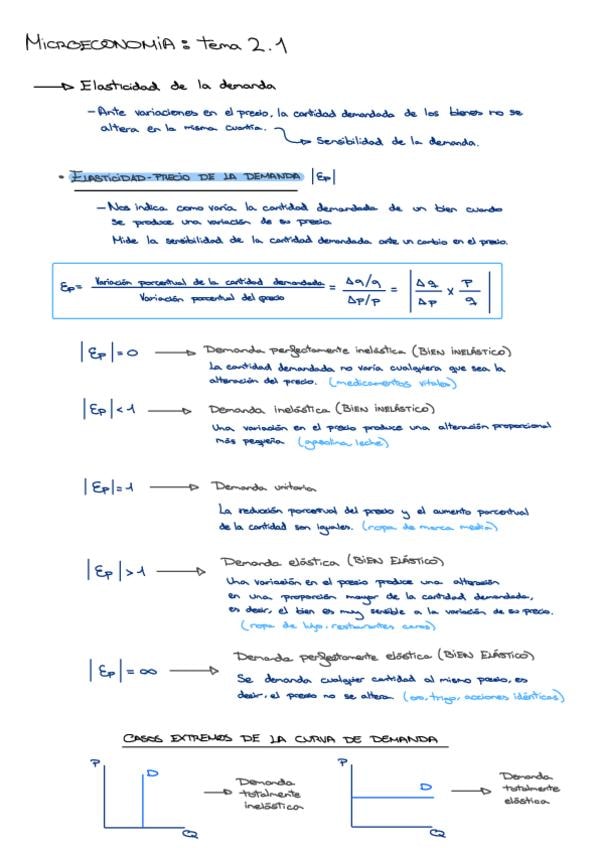 MICROECONOMIA: Tema 2.1
Elasticidad de la demanda
- Ante variaciones en el precio, la cantidad demandada de los bienes no se
altera en la misma cuantía.
Sensibilidad de la demanda.
• ELASTICIDAD-PRECIO DE LA DEMANDA |Ep|
- Nos indica como varía la cantidad demandada de un bien cuando
se produce una variación de su precio
Mide la sensibilidad de la cantidad demandada ante un cambio en el precio.
Ep = Variación porcentual de la cantidad demandada / Variación porcentual del precio = Δq/q / Δp/p = |Δq/Δp x P/q|
|Ep| = 0 → Demanda perfectamente inelástica (BIEN INELÁSTICO)
La cantidad demandada no varía cualquiera que sea la
alteración del precio. (medicamentos vitales)
|Ep| < 1 → Demanda inelástica (BIEN INELÁSTICO)
Una variación en el precio produce una alteración proporcional
más pequeña (gasolina, leche)
|Ep| = 1 → Demanda unitaria
La reducción porcentual del precio y el aumento porcentual
de la cantidad son iguales. (ropa de marca media)
|Ep| > 1 → Demanda elástica (BIEN ELÁSTICO)
Una variación en el precio produce una alteración
en una proporción mayor de la cantidad demandada,
es decir, el bien es muy sensible a la variación de su precio.
(ropa de lujo, restaurantes caros)
|Ep| = ∞ → Demanda perfectamente elástica (BIEN ELÁSTICO)
Se demanda cualquier cantidad al mismo precio, es
decir, el precio no se altera (oro, trigo, acciones idénticas)
CASOS EXTREMOS DE LA CURVA DE DEMANDA
P D Q
Demanda
totalmente
inelástica
P D Q
Demanda
totalmente
elástica